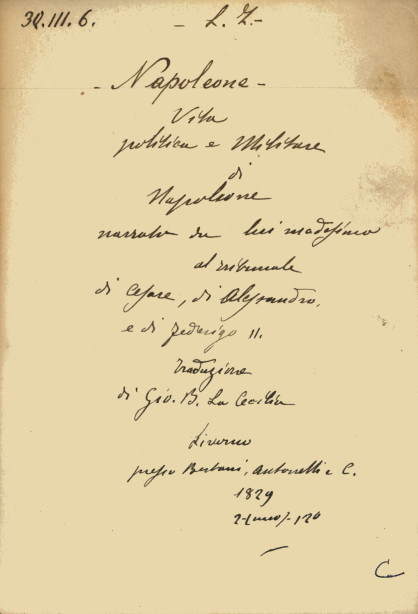 30.III.6. - L. Z. -
- Napoleone -
Vita
politica e Militare
di
Napoleone
narrata da lui medesimo
al tribunale
di Cesare, di Alessandro,
e di Federigo II.
traduzione
di Gio. B. La Cecilia
Livorno
presso Bertani, Antonelli e C.
1829
C